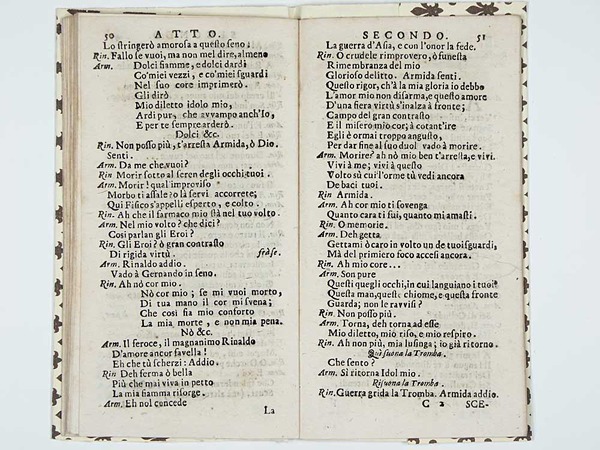 50 ATTO.
Lo stringerò amorosa a questo seno.
Rin. Fallo se vuoi, ma non mel dire, almeno
Arm. Dolci fiamme, e dolci dardi
Co'miei vezzi, e co'miei sguardi
Nel suo core imprimerò.
Gli dirò
Mio diletto idolo mio,
Ardi pur, che avvampo anch'Io,
E per te sempre arderò.
Dolci &c.
Rin. Non posso più, t'arresta Armida, ò Dio.
Senti.
Arm. Da me che vuoi?
Rin Morir sotto al seren degli occhi tuoi.
Arm. Morir! qual improviso
Morbo ti assale? o la servi accorrete;
Qui Fisico s'appelli esperto, e colto.
Rin. Ah che il farmaco mio stà nel tuo volto.
Arm. Nel mio volto? che dici?
Così parlan gli Eroi?
Rin. Gli Eroi? ò gran contrasto
Di rigida virtù. fràse.
Arm. Rinaldo addio.
Vado à Gernando in seno.
Rin. Ah nò cor mio.
Nò cor mio; se mi vuoi morto,
Di tua mano il cor mi svena;
Che così fia mio conforto
La mia morte, e non mia pena.
Nò &c.
Arm. Il feroce, il magnanimo Rinaldo
D'amore ancor favella!
Eh che tù scherzi: Addio.
Rin Deh ferma ò bella
Più che mai viva in petto
La mia fiamma risorge.
Arm. Eh nol concede
La
SECONDO. 51
La guerra d'Asia, e con l'onor la fede.
Rin. O crudele rimprovero, ò funesta
Rimembranza del mio
Glorioso delitto. Armida senti.
Questo rigor, ch'à la mia gloria io debbo
L'amor mio non disarma, e questo amore
D'una fiera virtù s'inalza à fronte;
Campo del gran contrasto
E il misero mio cor; à cotant'ire
Egli è ormai troppo angusto,
Per dar fine al suo duol vado à morire.
Arm. Morire? ah nò mio ben t'arresta, e vivi.
Vivi à me; à questo
Volto sù cui l'orme tù vedi ancora
De baci tuoi.
Rin Armida.
Arm. Ah cor mio ti sovenga
Quanto cara ti fui, quanto mi amasti.
Rin. O memorie.
Arm. Deh getta
Gettami ò caro in volto un de tuoi sguardi,
Mà del primero foco accesi ancora.
Rin. Ah mio core...
Arm. Son pure
Questi quegli occhi, in cui languiano i tuoi
Questa man, queste chiome, e questa fronte
Guarda; non le ravvisi?
Rin. Non posso più.
Arm. Torna, deh torna ad esse
Mio diletto, mio riso, e mio respiro.
Rin. Ah non più, mia lusinga; io già ritorno.
Quì suona la Tromba.
Che sento?
Arm. Sì ritorna Idol mio.
Risuona la Tromba.
Rin. Guerra grida la Tromba. Armida addio.
C 2 SCE-